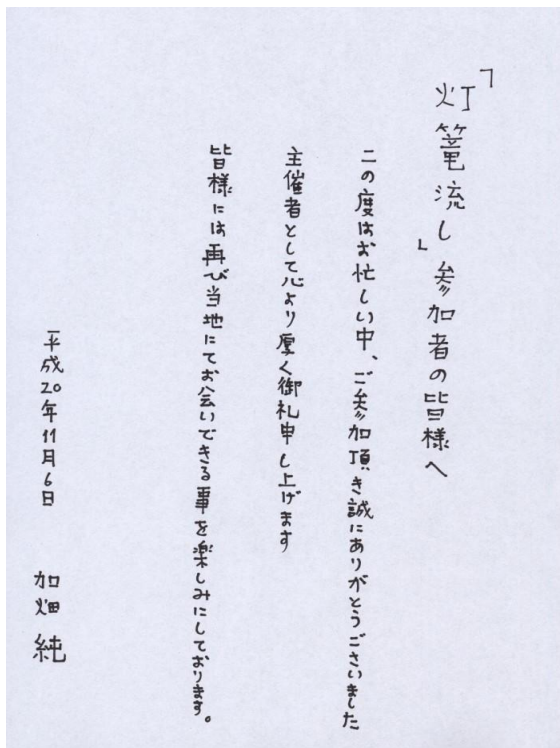 「灯篭流し」参加者の皆様へ
この度はお忙しい中、ご参加頂き誠にありがとうございました
主催者として心より厚く御礼申し上げます
皆様には再び当地にてお会いできる事を楽しみにしております。
平成20年11月6日 加畑 純